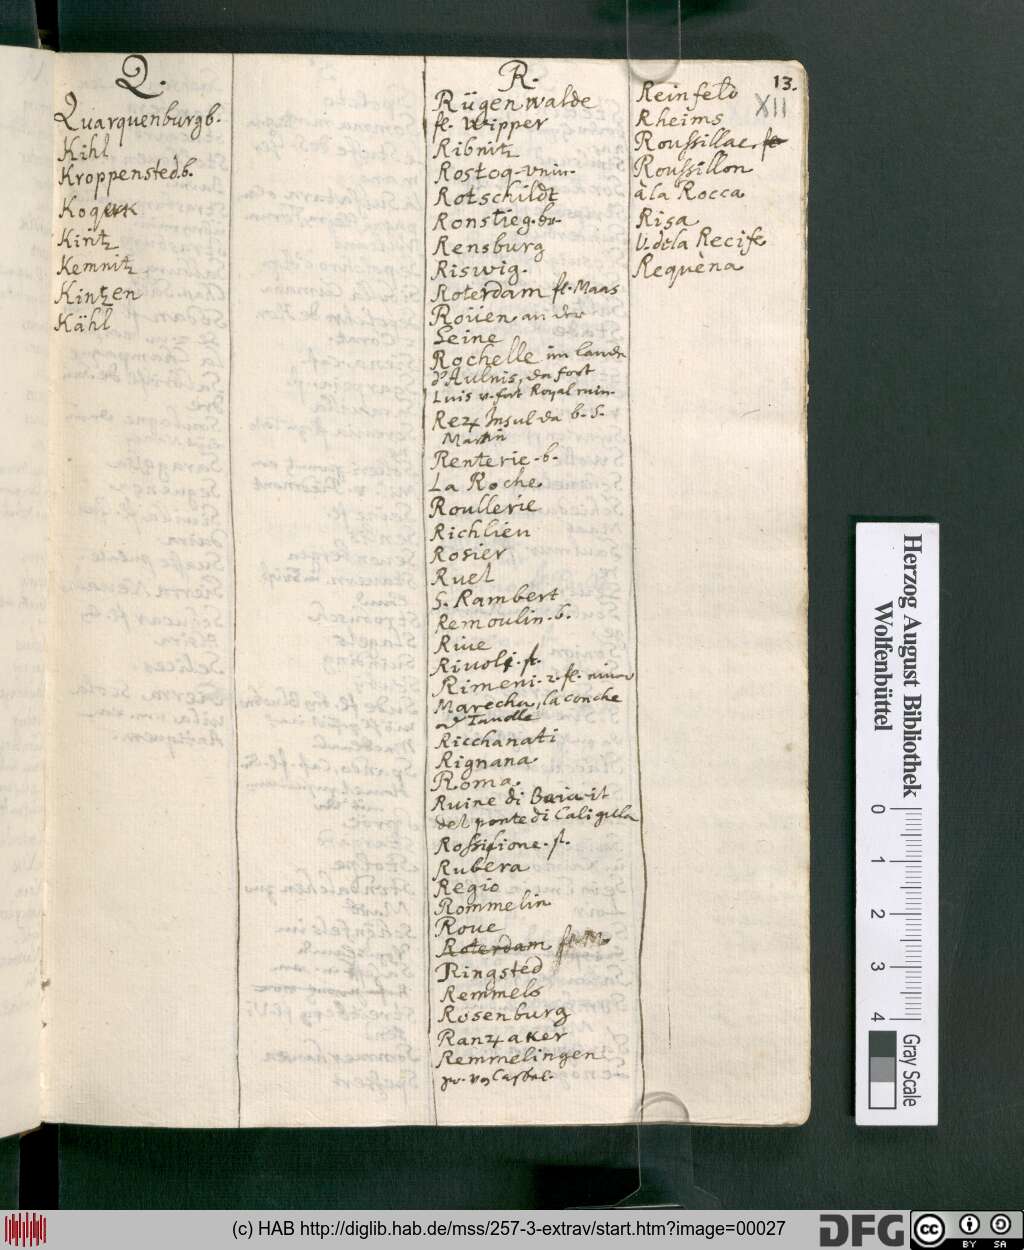 Q.
Quarquenburg b.
Kihl
Kroppensted. b.
Kogerk
Kiritz
Kemnitz
Kintzen
Kähl
R.
Rügenwalde
fl. Wipper
Ribnitz
Rostoq-vniv.
Rotschildt
Ronstieg. br.
Rensburg
Riswig.
Roterdam fl. Maas
Roüen an der
Seine
Rochelle im lande
d'Aulnis, da fort
Luis v. fort Royal ruin.
Rez Insul da b. S.
Martin
Renterie. b.
La Roche
Roullerie
Richlieu
Rosier
Ruel
S. Rambert
Remoulin. b.
Riue
Rivoli. fl.
Rimeni. 2. fl.
Marecha, la conche
Ricchanati
Rignana
Roma.
Ruine di Baia-it
del ponte di Caligulla
Rossilione. fl.
Rubera
Regio
Rommelin
Roue
Roterdam fl. M.
Ringsted
Remmels
Rosenburg
Ranzaker
Remmelingen
13.
XII
Reinfeld
Rheims
Roussillac. fl
Roussillon
à la Rocca
Risa
V. de la Recife
Requèna
Herzog August Bibliothek
Wolfenbüttel
0 1 2 3 4
Gray Scale
(c) HAB http://diglib.hab.de/mss/257-3-extrav/start.htm?image=00027
DFG
CC BY SA